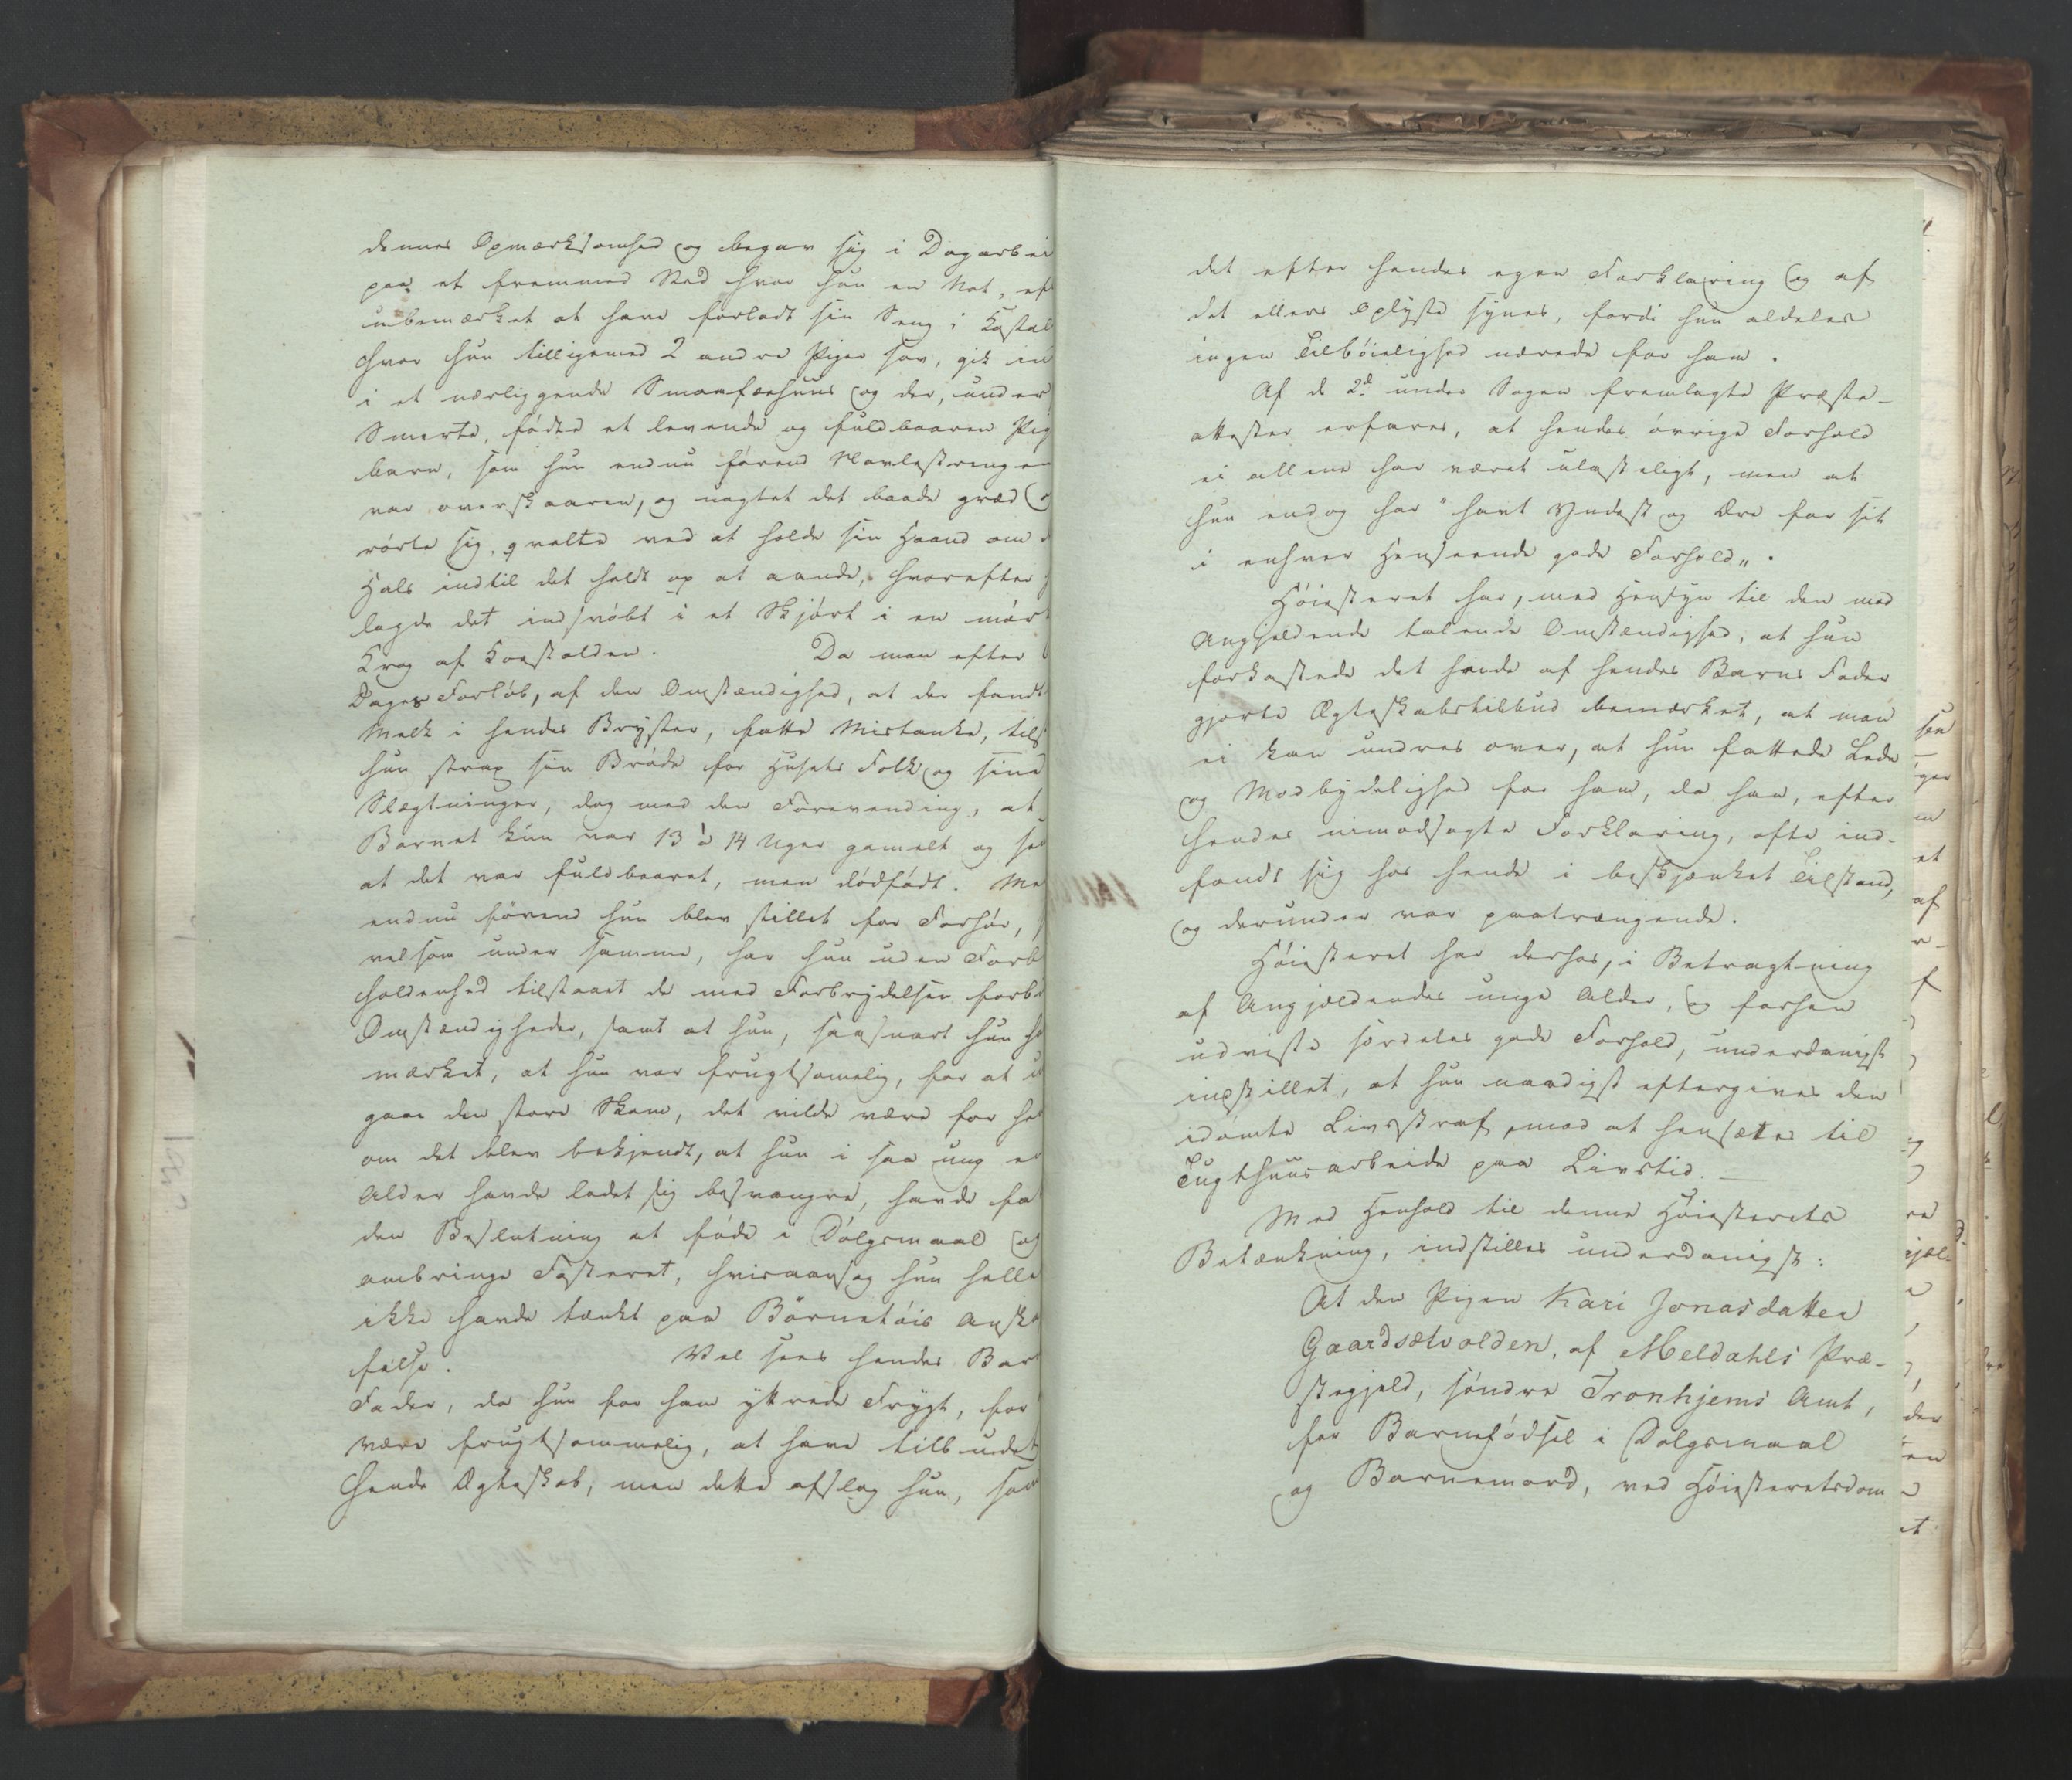 dennes Opmærksomhed og begav sig i Dagarbei
paa et fremmed Sted hvor hun en Nat, ef
ubemærket at have forladt sin Seng i Kostal
hvor hun tilligemed 2 andre Piger sov, gik in
i et nærliggende Smaafæehuus og der, under
Smerte, fødte et levende og fuldbaaren Pig
barn, som hun endnu førend Navlestrengen
var overskaaren, og uagtet det baade græd o
rørte sig, qvalte ved at holde sin Haand om d
Hals indtil det holdt op at aande, hvorefter
lagde det indsvøbt i et Skjørt i en mør
Krog af Koestalden. Da man efter
Dages Forløb, af den Omstændighed, at der fandt
Melk i hendes Bryster, fattte Mistanke, tils
hun strax sin Brøde for Husets Folk og sine
Slægtninger, dog med den Forevending, at
Barnet kun var 13 à 14 Uger gamelt og se
at det var fuldbaaret, men dødfødt. Me
endnu førend hun blev stillet for Forhør,
velsom under samme, har hun uden Forb
holdenhed tilstaaet de med Forbrydelsen forb
Omstændigheder, samt at hun, saasnart hun ha
mærket, at hun var frugtsomelig, for at u
gaae den store Skam, det vilde være for he
om det blev bekjendt, at hun i saa ung e
Alder havde ladet sig besvangre, havde fa
den Beslutning at føde i Dølgsmaal og
ombringe Fosteret, hvisaarsag hun helle
ikke havde tænkt paa Børnetøis Anska
felse. Vel sees hendes Bar
Fader, da hun for ham yttrede Frygt, for
være frugtsommelig, at have tilbudet
hende Ægteskab, men dette afslog hun, som
det efter hendes egen Forklaring og af
det ellers oplyste synes, fordi hun aldeles
ingen Tilbøielighed nærede for ham.
Af de 2de under Sagen fremlagte Præste-
attester erfares, at hendes øvrige Forhold
ei allene har været ulasteligt, men at
hun endog har "havt Yndest og Ære for sit
i enhver Henseende gode Forhold".
Høiesteret har, med Hensyn til den mod
Angjeldende talende Omstændighed, at hun
forkastede det hende af hendes Barns Fader
gjorte Ægteskabstilbud bemærket, at man
ei kan undres over, at hun fattede Lede
og Modbydelighed for ham, da han, efter
hendes uimodsagte Forklaring, ofte ind-
fandt sig hos hende i beskjænket Tilstand,
og derunder var paatrængende.
Høiesteret har derhos, i Betragtning
af Angjældendes unge Alder, og forhen
udviste særdeles gode Forhold, underdanigst
indstillet, at hun naadigst eftergives den
idømte Livsstraf, mod at hensættes til
Tugthuusarbeide paa Livstid. —
Med Henhold til denne Høiesterets
Betænkning, indstilles underdanigst:
At den Pigen Kari Jonasdatter
Gaardsætvolden, af Meldahls Præ-
stegjeld, søndre Tronhjems Amt,
for Barnefødsel i Dølgsmaal
og Barnemord, ved Høiesteretsdom